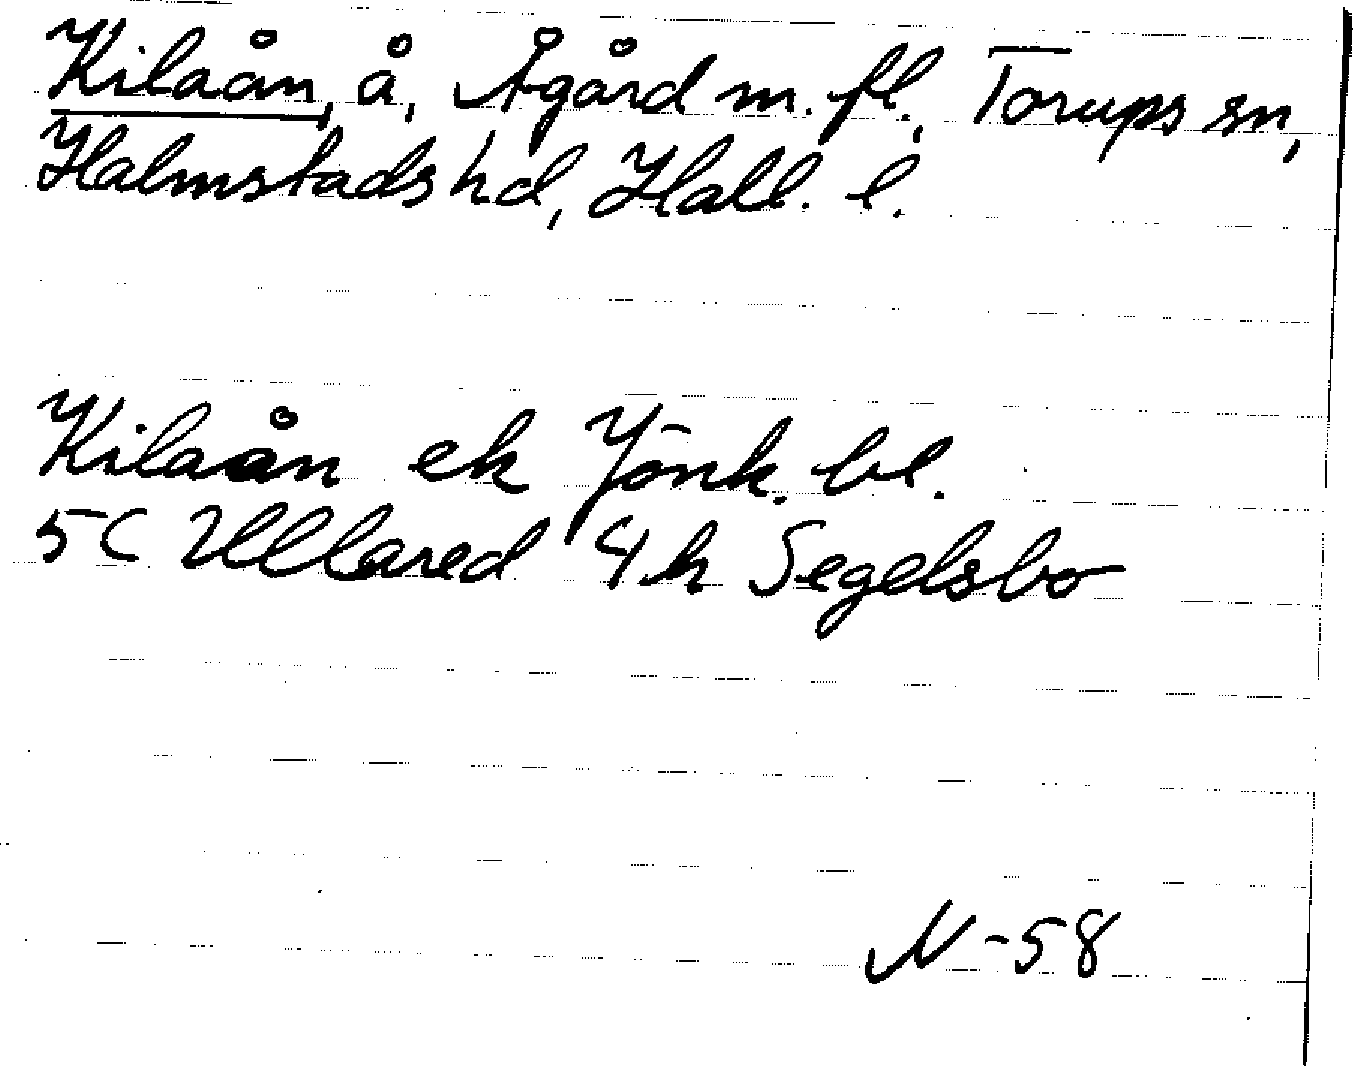 Kilaån, å, Ågård m. fl., Torups sn,
Halmstads hd, Hall. l.
Kilaån ek Jönk. bl.
5C Ullared 4h Segelsbo
N-58